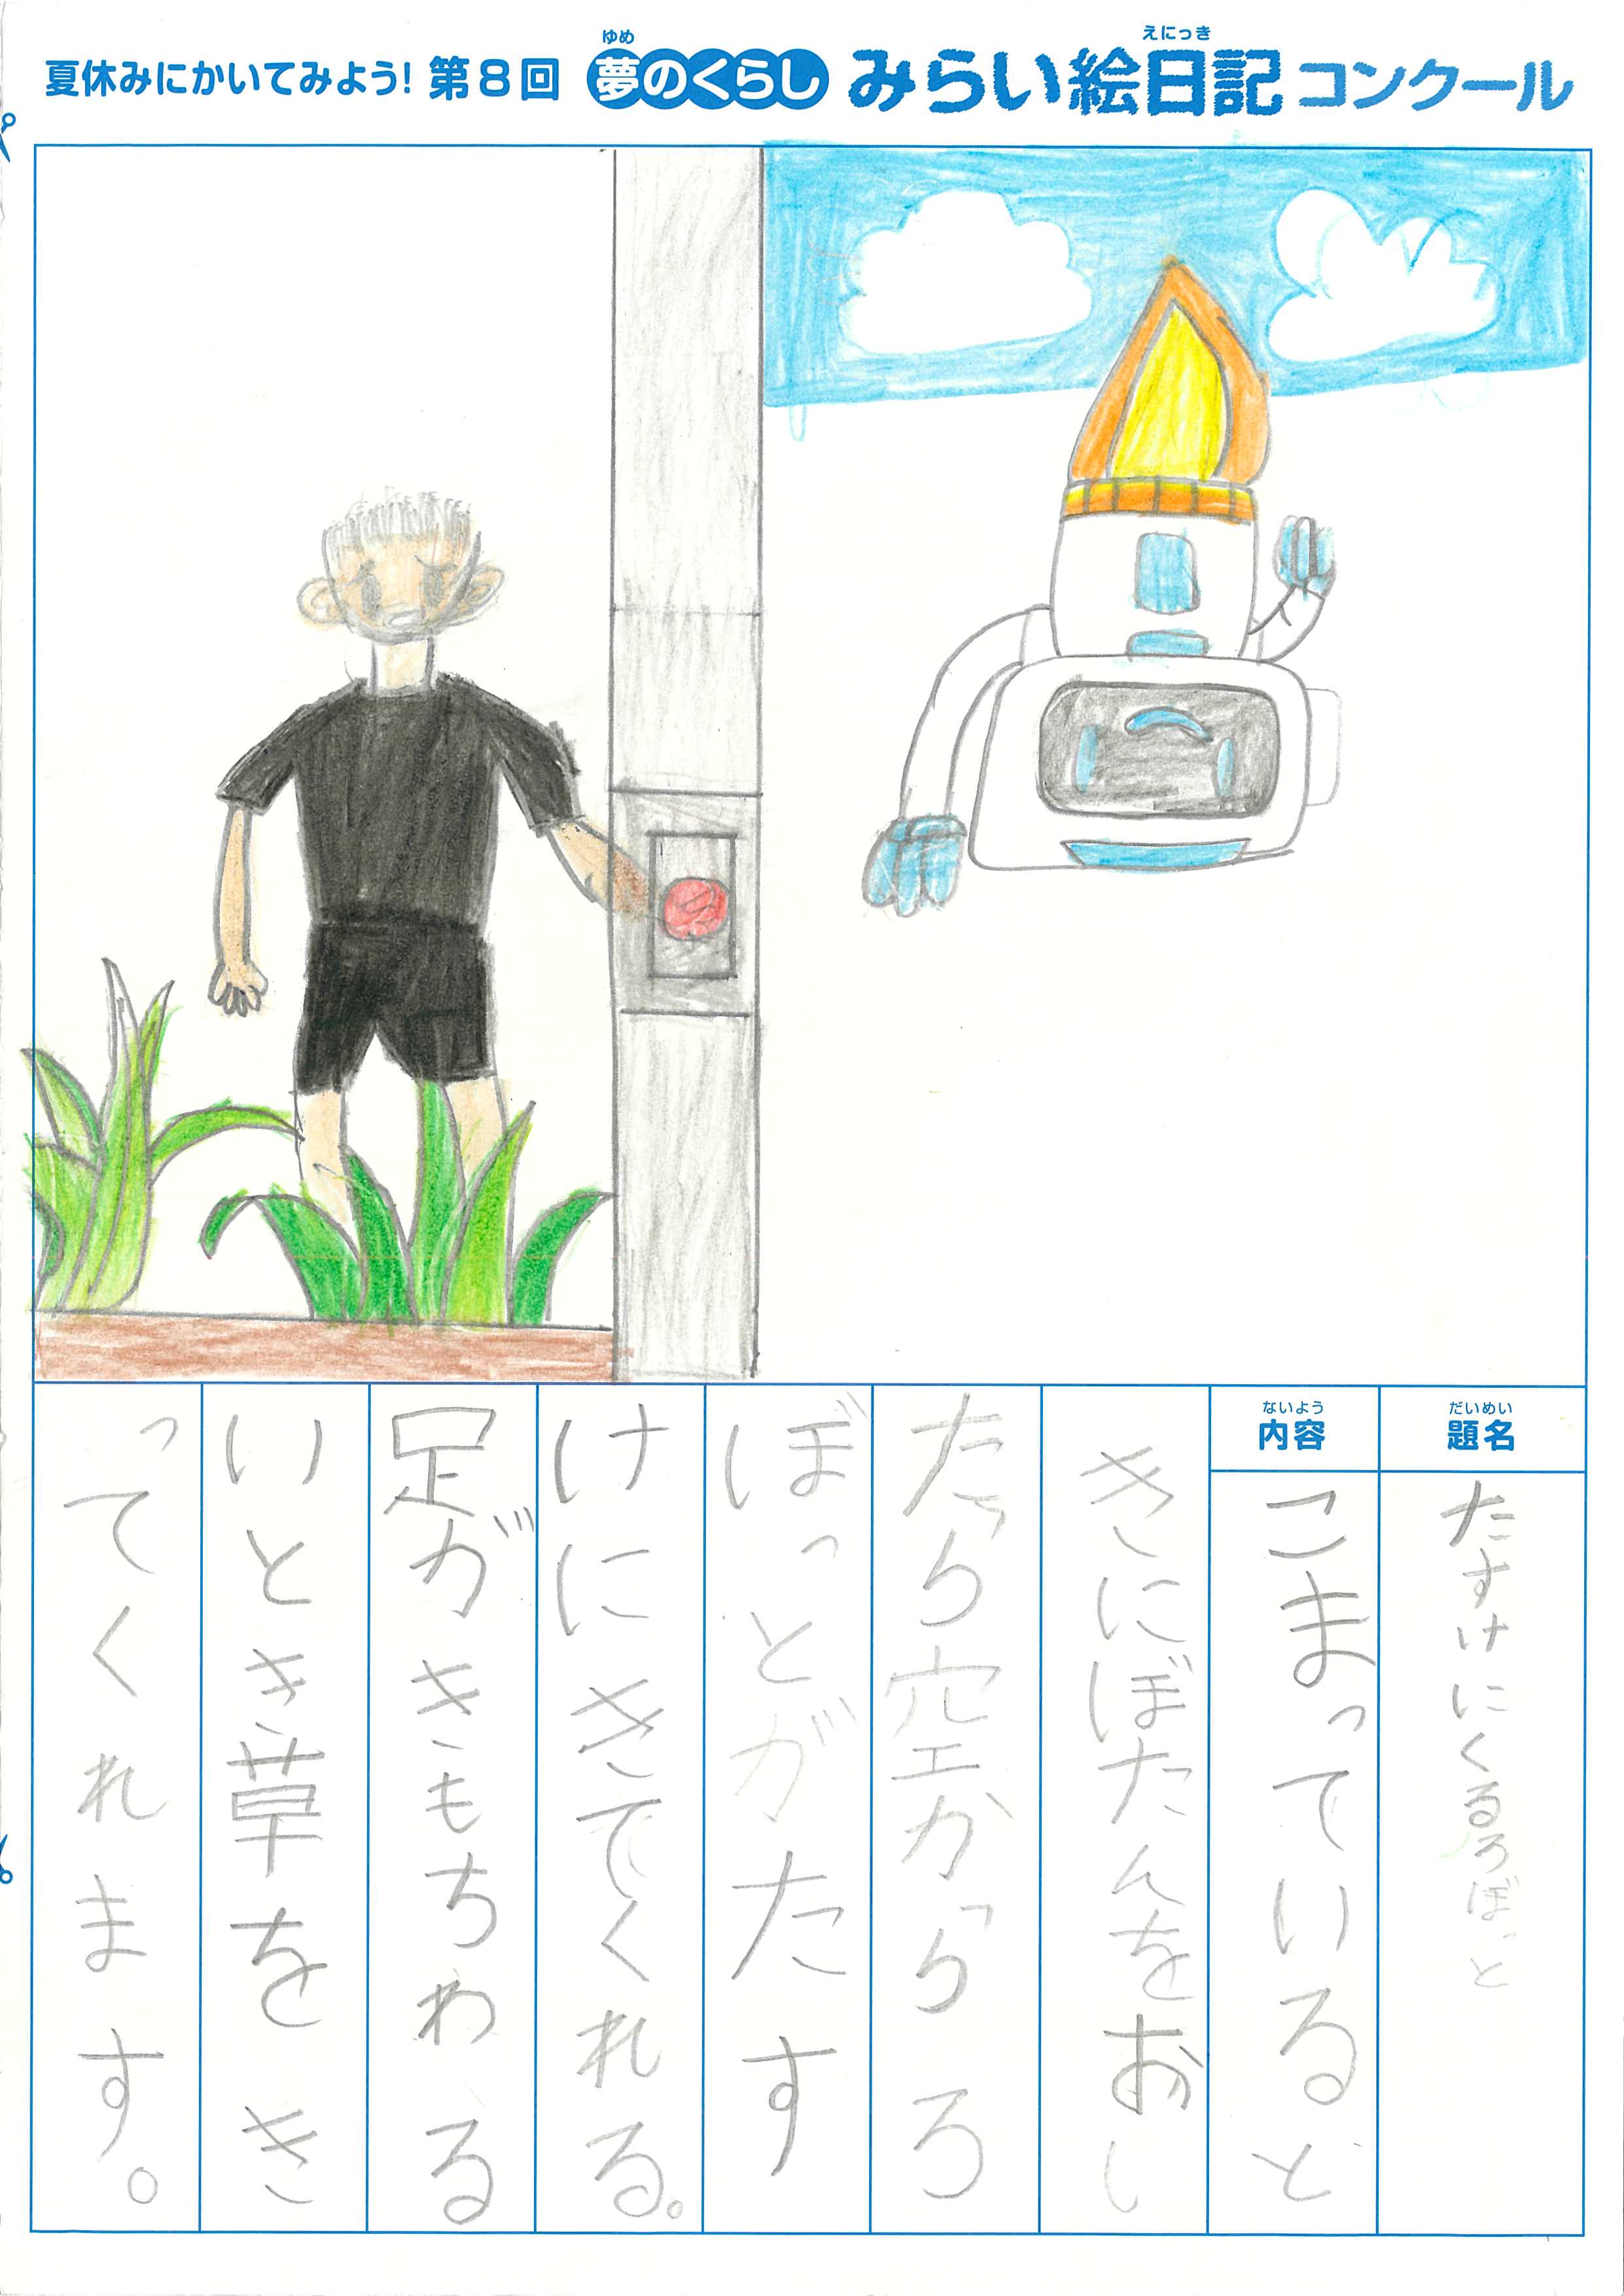 夏休みにかいてみよう! 第8回 夢のくらし みらい絵日記コンクール
ゆめ
えにっき
だいめい
題名
たすけにくるろぼっと
ないよう
内容
こまっていると
きにぼたんをおし
たら空からろ
ぼっとがたす
けにきてくれる。
足がきもちわる
いとき草をき
ってくれます。